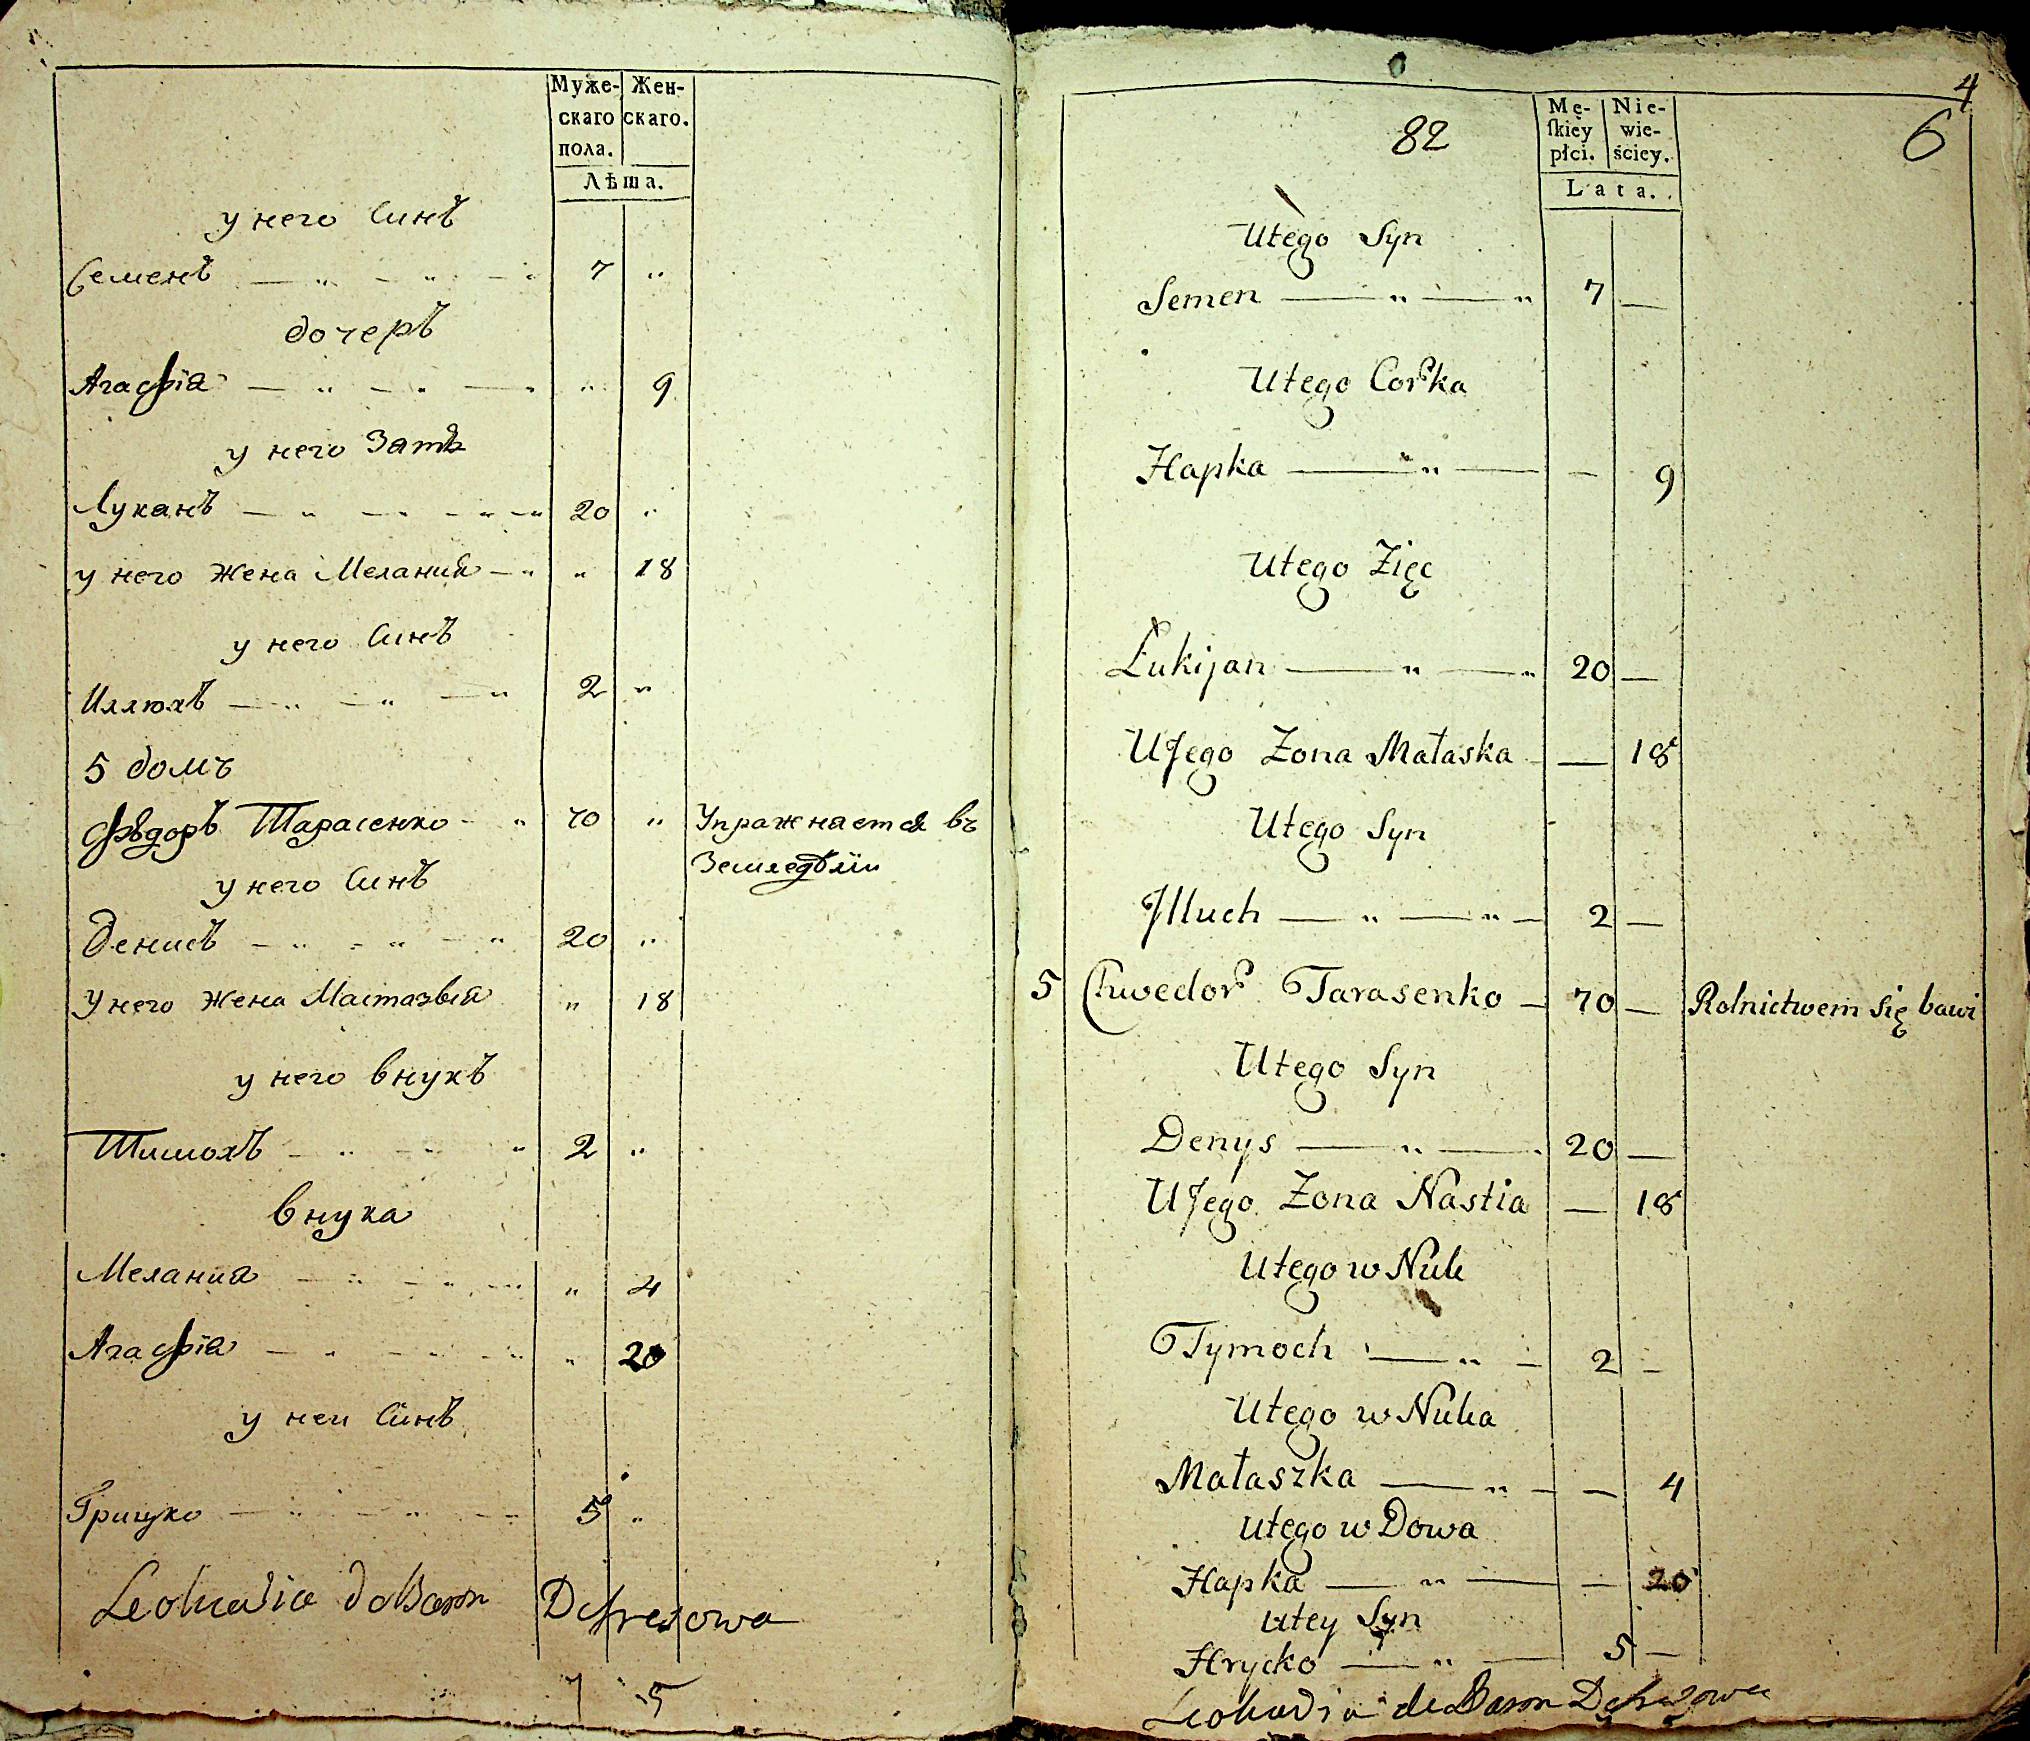 Муже-
скаго
пола.
Жен-
скаго.
Лѣта.
у него Синъ
Семенъ 7 „
дочеръ
Агафія „ 9
у него Зать
Луканъ 20 „
у него Жена Мелания „ 18
у него Синъ
Иллюхъ 2 „
5 домъ
Фѣдоръ Тарасенко 70 „ Упражнается въ
Земледѣліи
у него Синъ
Денисъ 20 „
У него Жена Мастазвія „ 18
у него внукъ
Тимохъ 2 „
внука
Мелания „ 4
Агафія „ 20
у неи Синъ
Грицко 5 „
Leokadia de Baron
7 5
4
82
6
Mę-
ſkiey
płci.
Nie-
wie-
ściey.
Lata.
Utego Syn
Semen — „ — „ 7 —
Utego Corka
Hapka — „ — — 9
Utego Zięc
Łukijan — „ — „ 20 —
UJego Zona Małaska — 18
Utego Syn
Jlluch — „ — „ — 2 —
5 Chwedor Tarasenko — 70 — Rolnictwem się bawi
Utego Syn
Denys — „ — 20 —
UJego Zona Nastia — 18
Utego wNuk
Tymoch — „ — 2 —
Utego wNuka
Małaszka — „ — — 4
Utego wDowa
Hapka — „ — — 20
Utey Syn
Hrycko — „ — 5 —
Leokadia de Baron